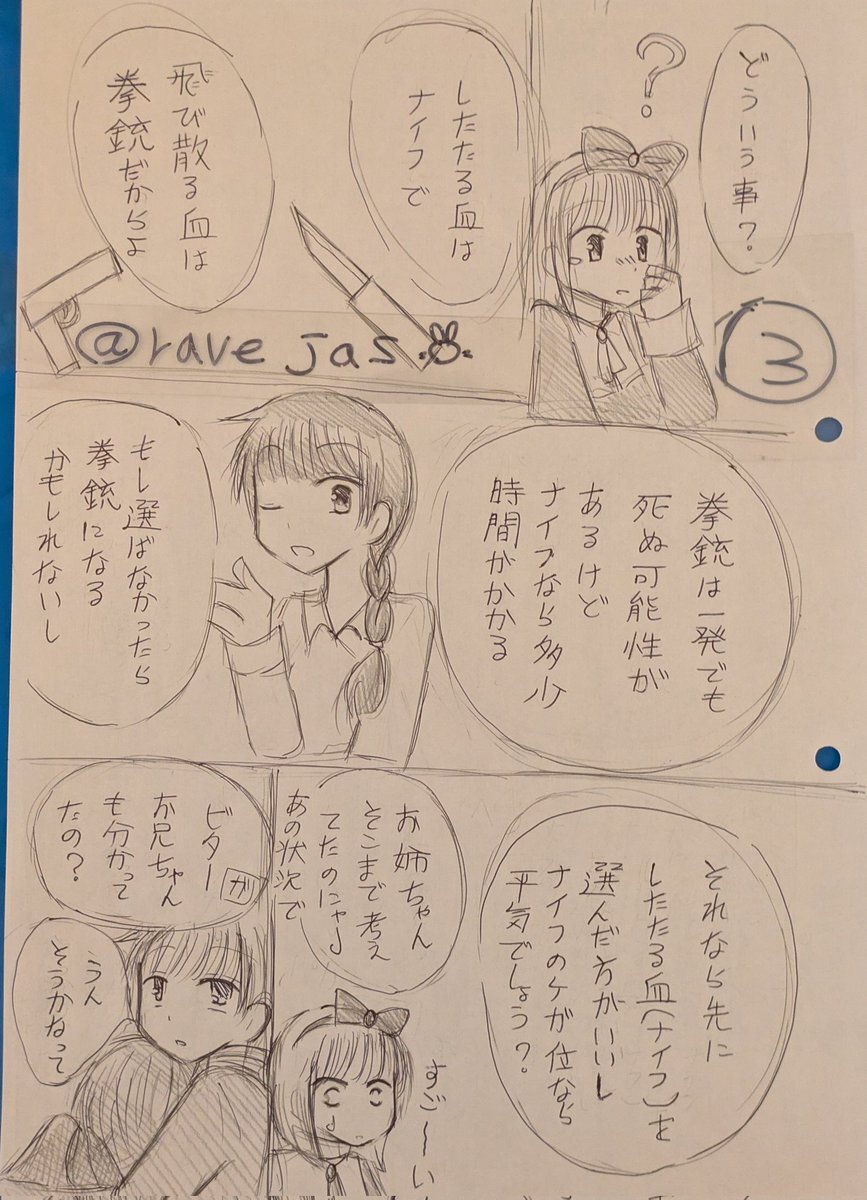 どういう事?
?
③
したたる血は
ナイフで
飛び散る血は
拳銃だからよ
@rave jas
拳銃は一発でも
死ぬ可能性が
あるけど
ナイフなら多少
時間がかかる
もし選ばなかったら
拳銃になる
かもしれないし
それなら先に
したたる血(ナイフ)を
選んだ方がいいし
ナイフのケガ位なら
平気でしょう?
お姉ちゃん
そこまで考え
てたのにゃ
あの状況で
すご〜い
ビターガ
お兄ちゃん
も分かって
たの?
うん
そうかねって